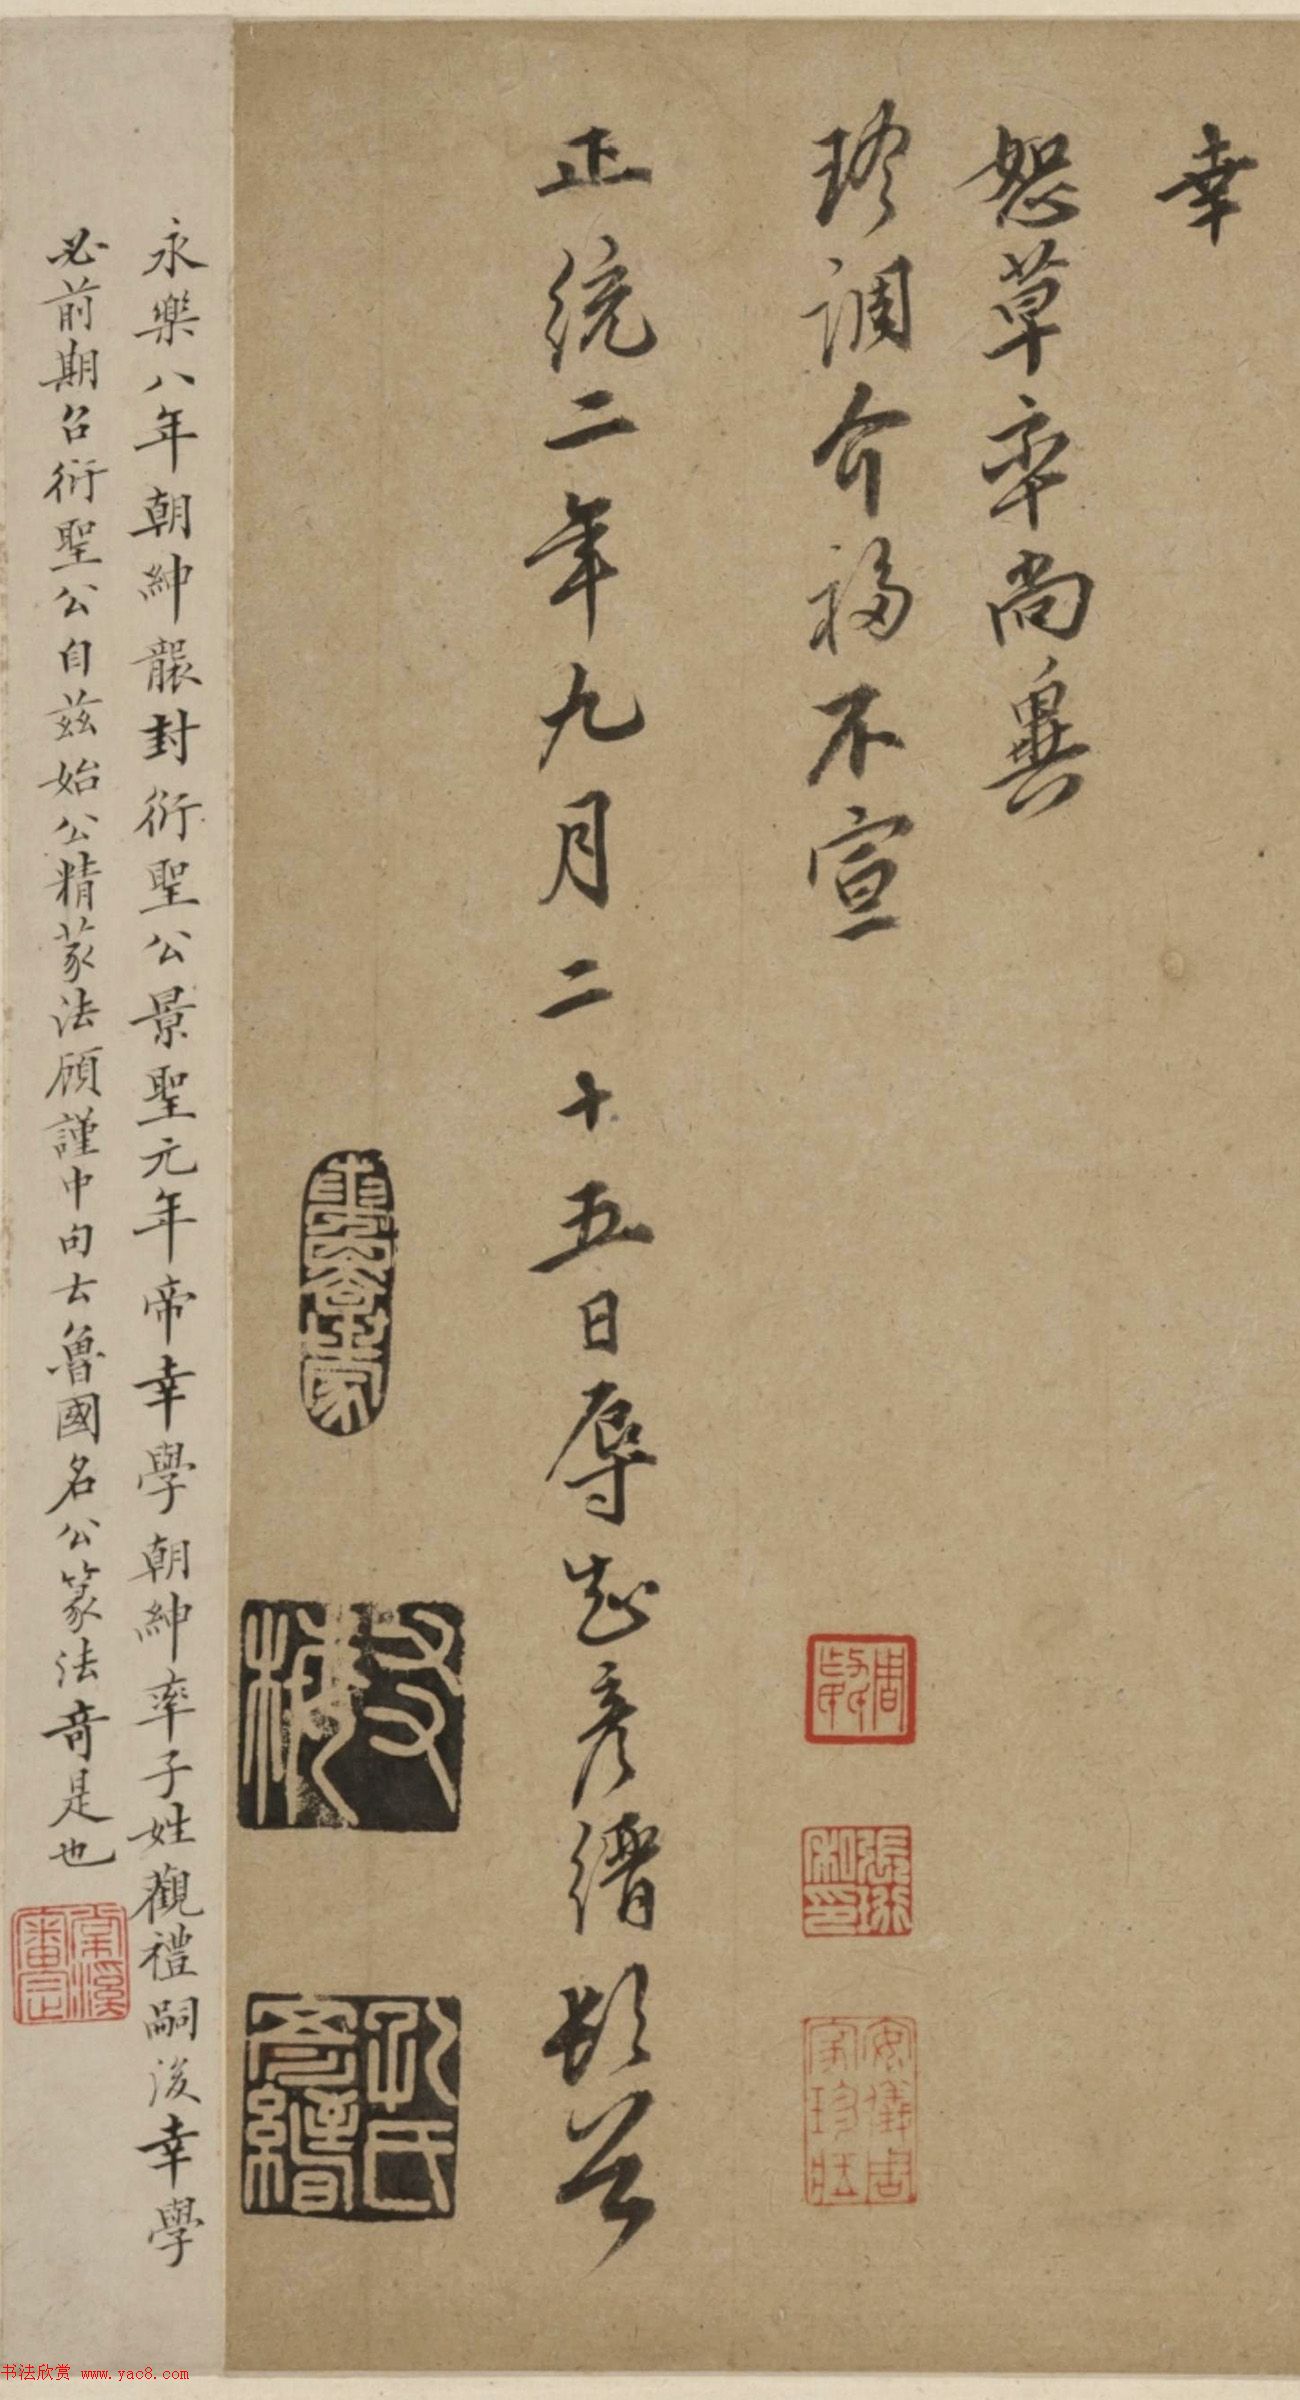 幸
恕草率尚冀
珍調介福不宣
正統二年九月二十五日辱知彥縉頓首
永樂八年朝紳襲封衍聖公景聖元年帝幸學朝紳率子姓觀禮嗣後幸學
必前期召衍聖公自茲始公精篆法顧謹中句云魯國名公篆法奇是也
孔氏彥縉
书法欣赏 www.yac8.com